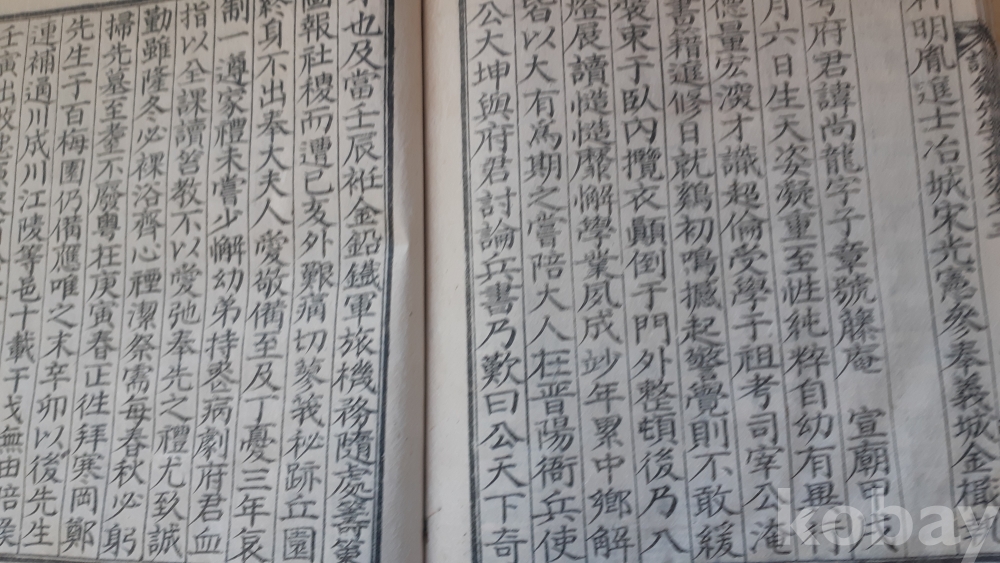 明胤進士冶城宋光憲參奉義城金楫
府君諱尚龍字子章號藤庵 宣廟甲戌
月六日生天姿凝重至性純粹自幼有異行
德量宏深才識超倫受學于祖考司宰公淹
書籍進修日就鷄初鳴撼起警覺則不敢緩
裳束于臥內攬衣顛倒于門外整頓後乃入
燈展讀慥慥靡懈學業夙成妙年累中鄉解
皆以大有爲期之嘗陪大人在晋陽衙兵使
公大坤與府君討論兵書乃歎曰公天下奇
才也及當壬辰袵金鉛鐵軍旅機務隨處籌策
圖報社稷而遭己亥外艱痛切蓼莪秘跡丘園
終身不出奉大夫人愛敬備至及丁憂三年哀
制一遵家禮未嘗少懈幼弟持病劇府君血
指以全課讀笞教不以愛弛奉先之禮尤致誠
勤雖隆冬必裸浴齊心禋潔祭需每春秋必躬
掃先墓至耋不廢粤在庚寅春正徃拜寒岡鄭
先生于百梅園仍備應唯之末辛卯以後先生
連補通川成川江陵等邑十載干戈無由陪侯
壬寅出
kobay